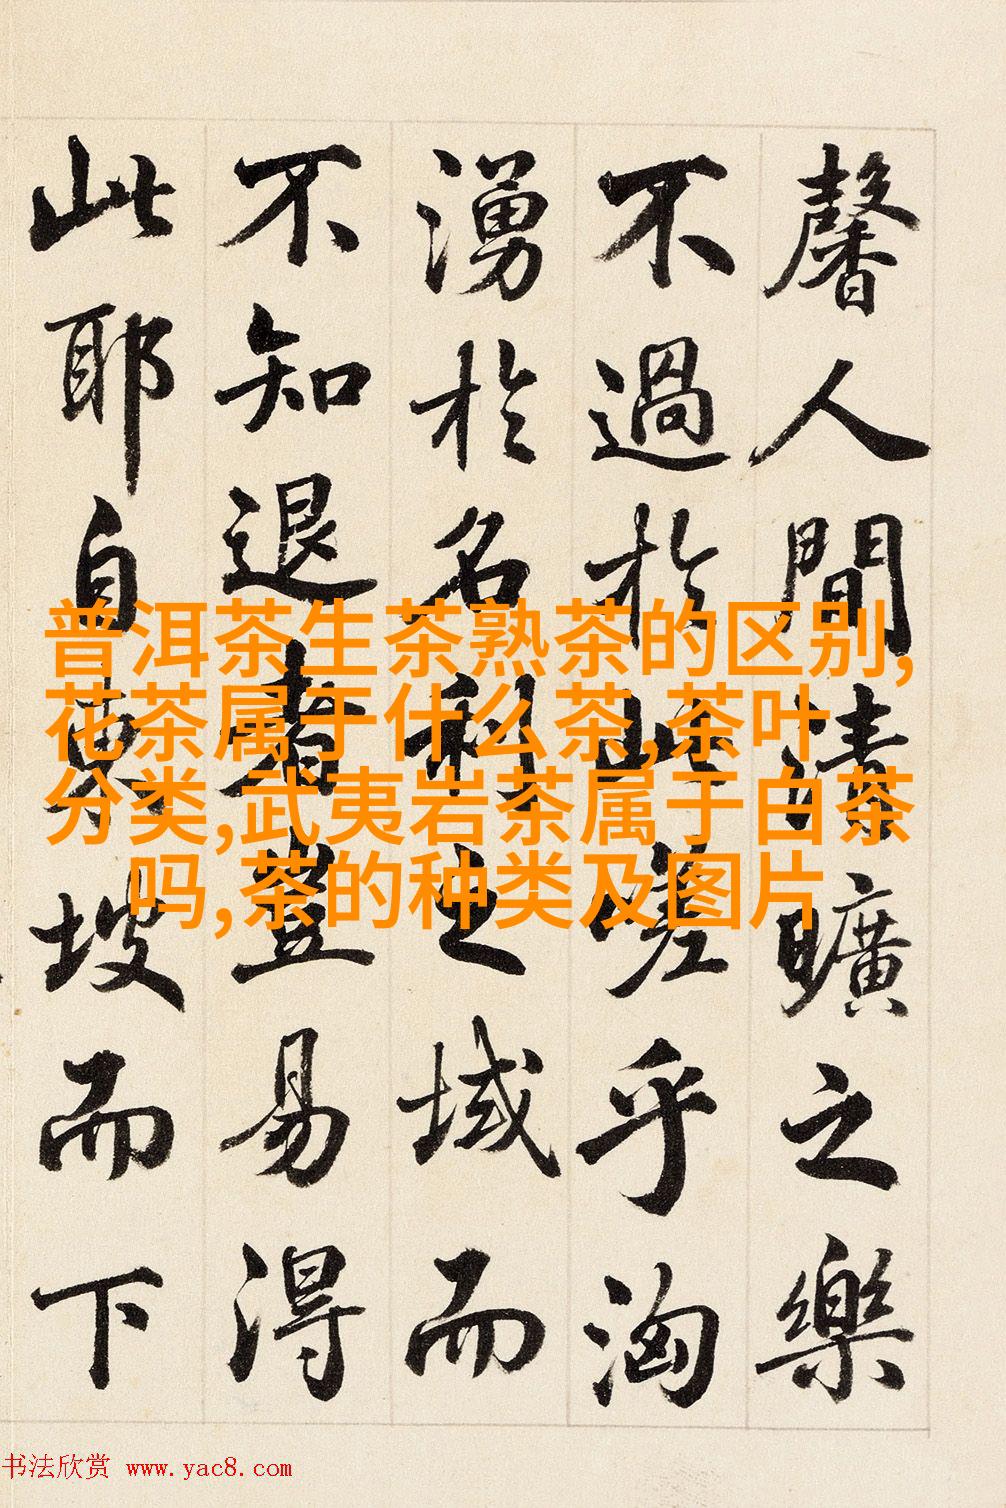 馨人間清曠之樂
不過於此嗟乎洶
湧於名科之域而
不知退者豈易得
此耶自東坡而下
普洱茶生茶熟茶的区别,
花茶属于什么茶,茶叶
分类,武夷岩茶属于白茶
吗,茶的种类及图片
书法欣赏 www.yac8.com